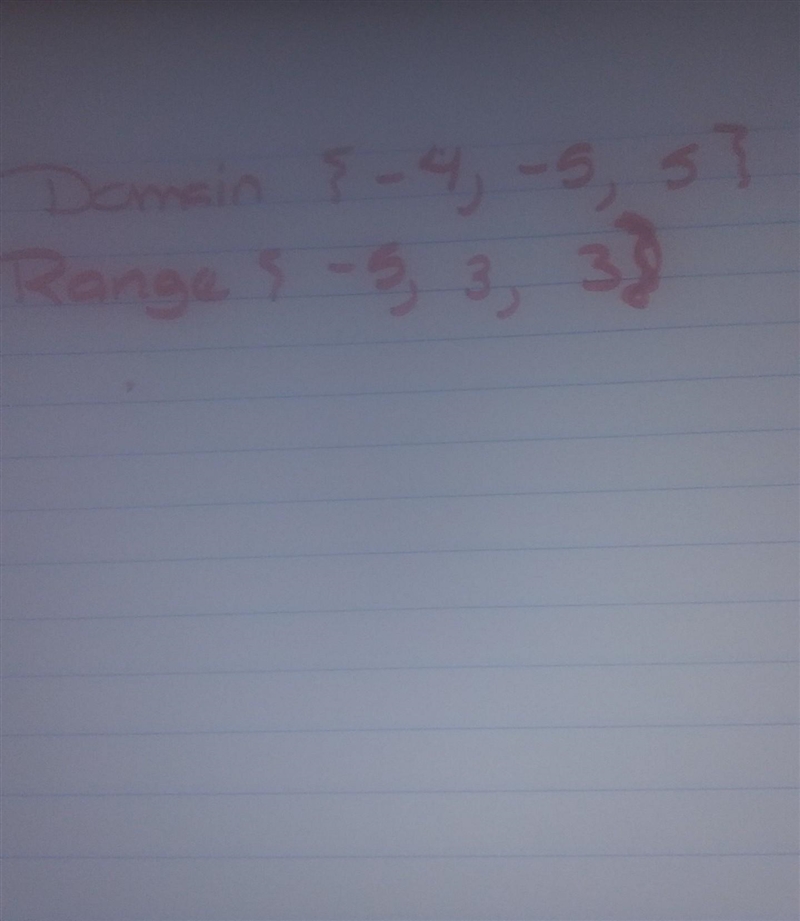 Domain { -4, -5, 5}
Range { -5, 3, 3}